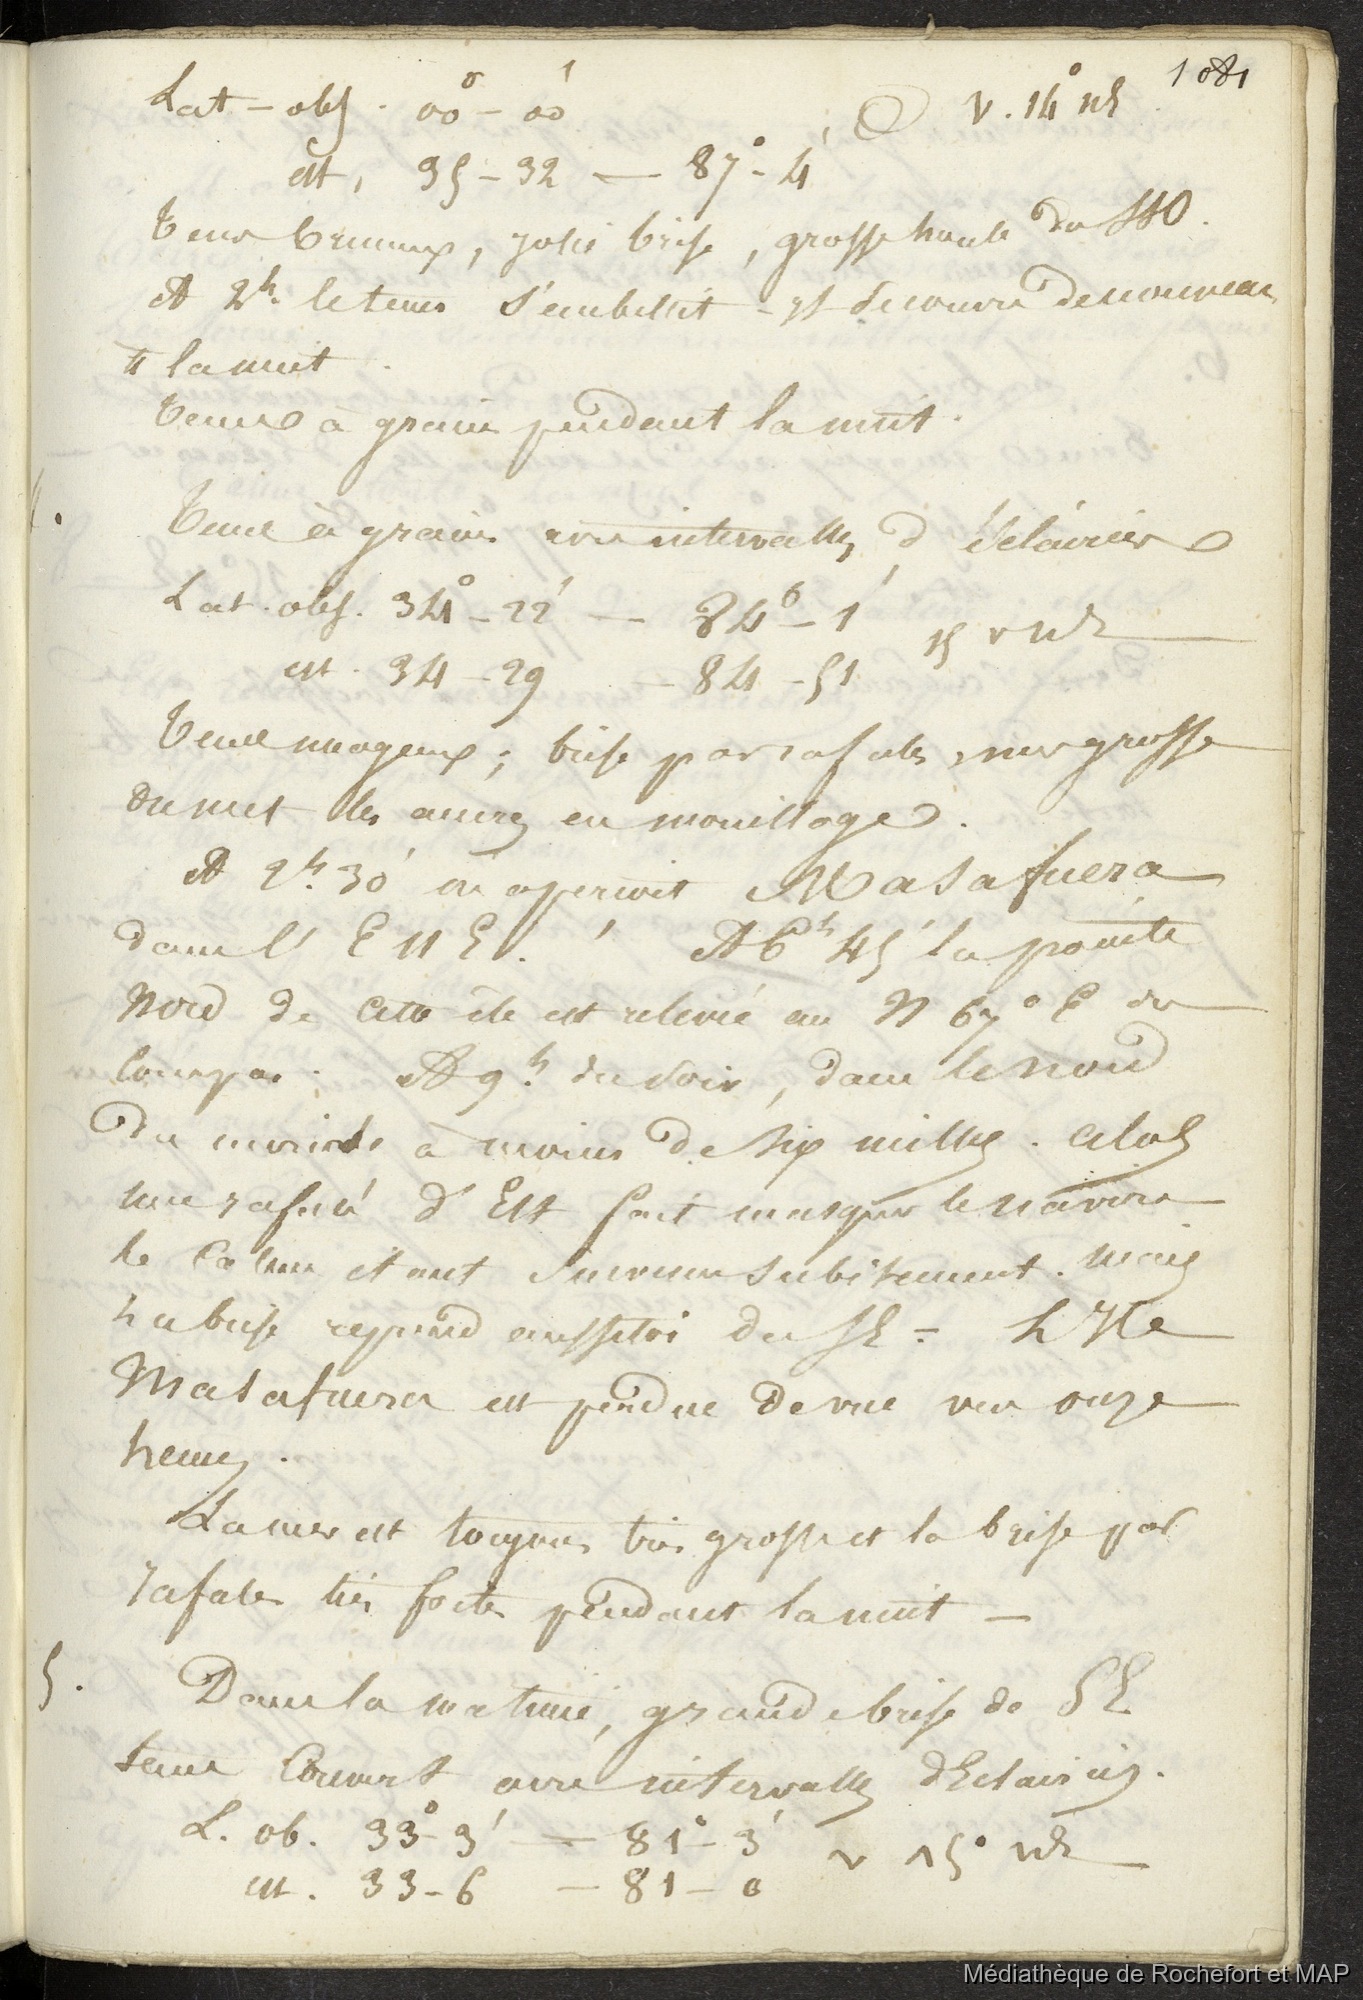 1081
Lat-obs. 00° - 00' V. 14° NE
est. 35-32 — 87°-4'
Tems brumeux, jolie brise, grosse houle du SSO.
A 2h. le tems s'embellit - et se couvre de nouveau
à la nuit.
Tems à grains pendant la nuit.
Tems à grains avec intervalles d'éclaircies
Lat. obs. 34° - 22' — 84° - 1' 15 v NE
est. 34 - 29 — 84 - 51
Tems nuageux; brise par rafales, mer grosse
on met les ancres en mouillage.
A 2h. 30' on aperçoit Masafuera
dans l'ENE. A 6h 45' la pointe
Nord de cette île est relevée au N 67° E du
compas. A 9h. du soir, dans le nord
du monde à moins de six milles. alors
une rafale d'Est fait masquer le navire
le calme étant survenu subitement. Mais
la brise reprend aussitôt du SE = L'Ile
Masafuera est perdue de vue vers onze
heures.
La mer est toujours très grosse et la brise par
rafales très fortes pendant la nuit —
5. Dans la matinée, grande brise de SE
tems couvert avec intervalles d'Eclaircies.
L. ob. 33° - 3' — 81° - 3' v 15° NE
est. 33 - 6 — 81 - 0
Médiathèque de Rochefort et MAP